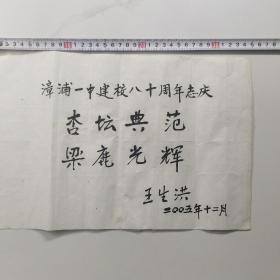 漳浦一中建校八十周年志庆
杏坛典范
梁鹿光辉
王生洪
二00五年十二月